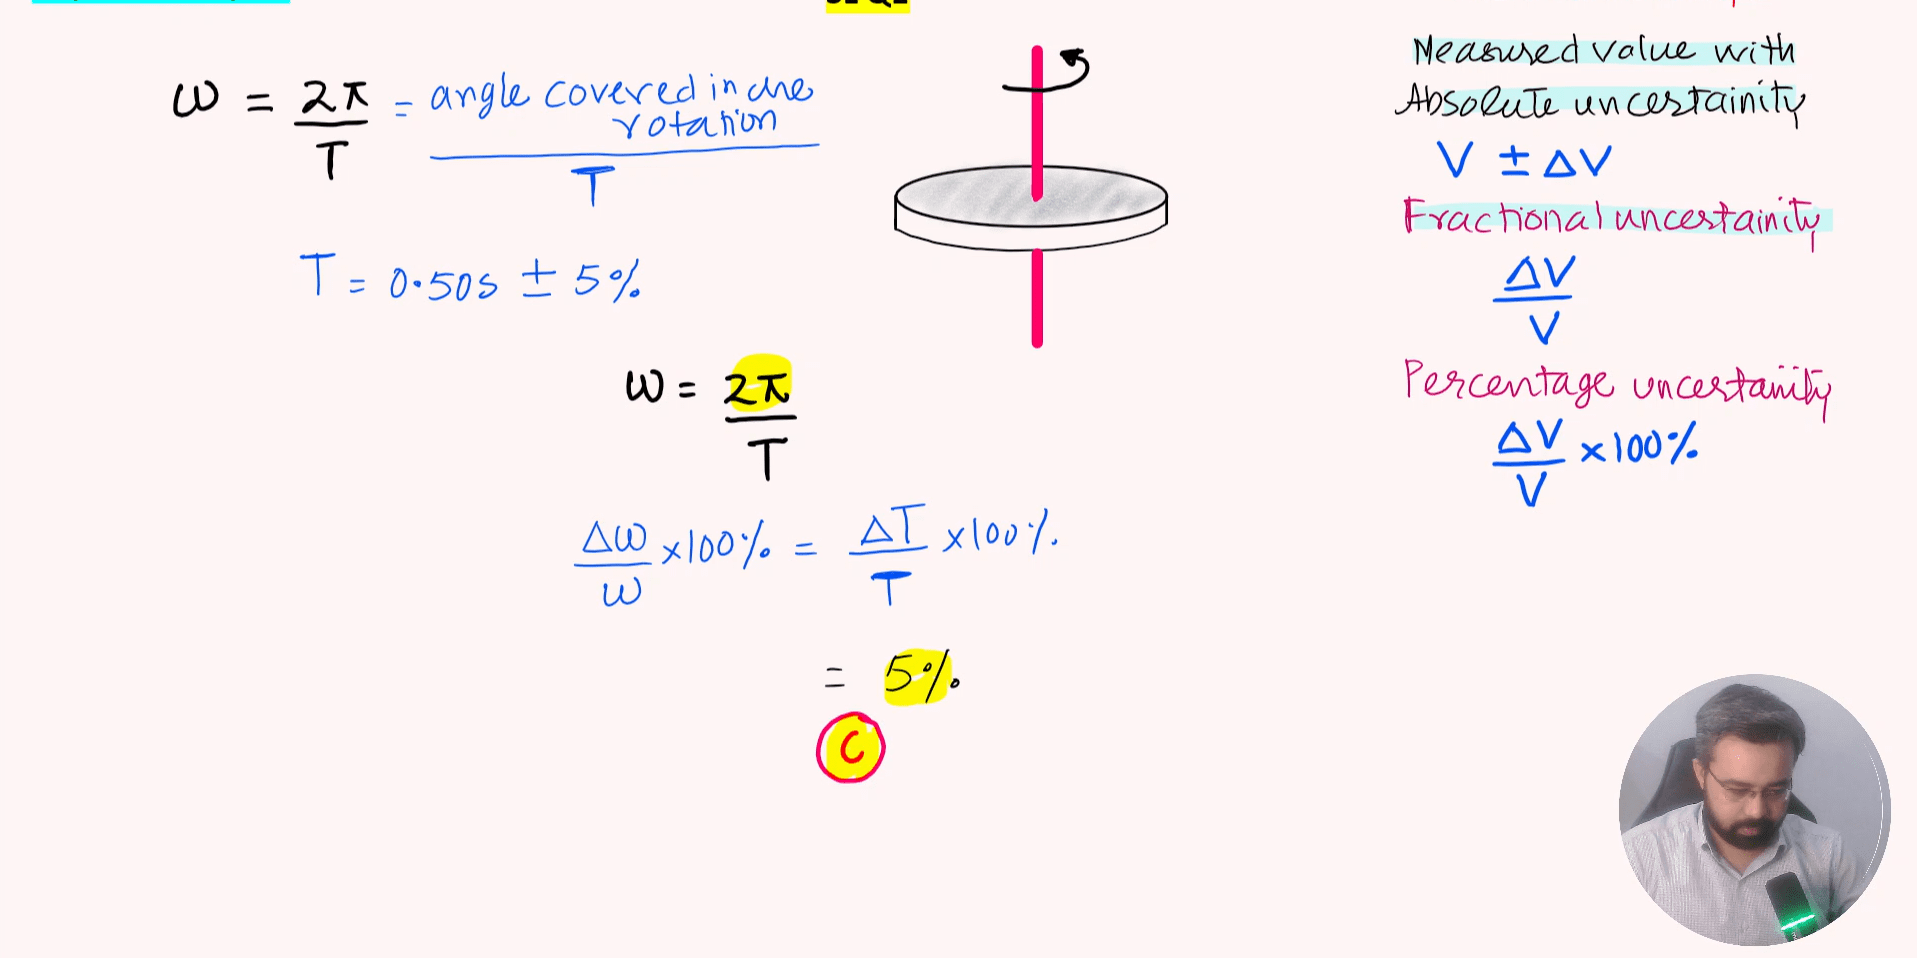 ω = 2π/T = angle covered in one rotation / T
T = 0.50s ± 5%
ω = 2π/T
Δω/ω ×100% = ΔT/T ×100%
= 5%
C
Measured value with
Absolute uncertainity
V ± ΔV
Fractional uncertainity
ΔV/V
Percentage uncertainity
ΔV/V ×100%